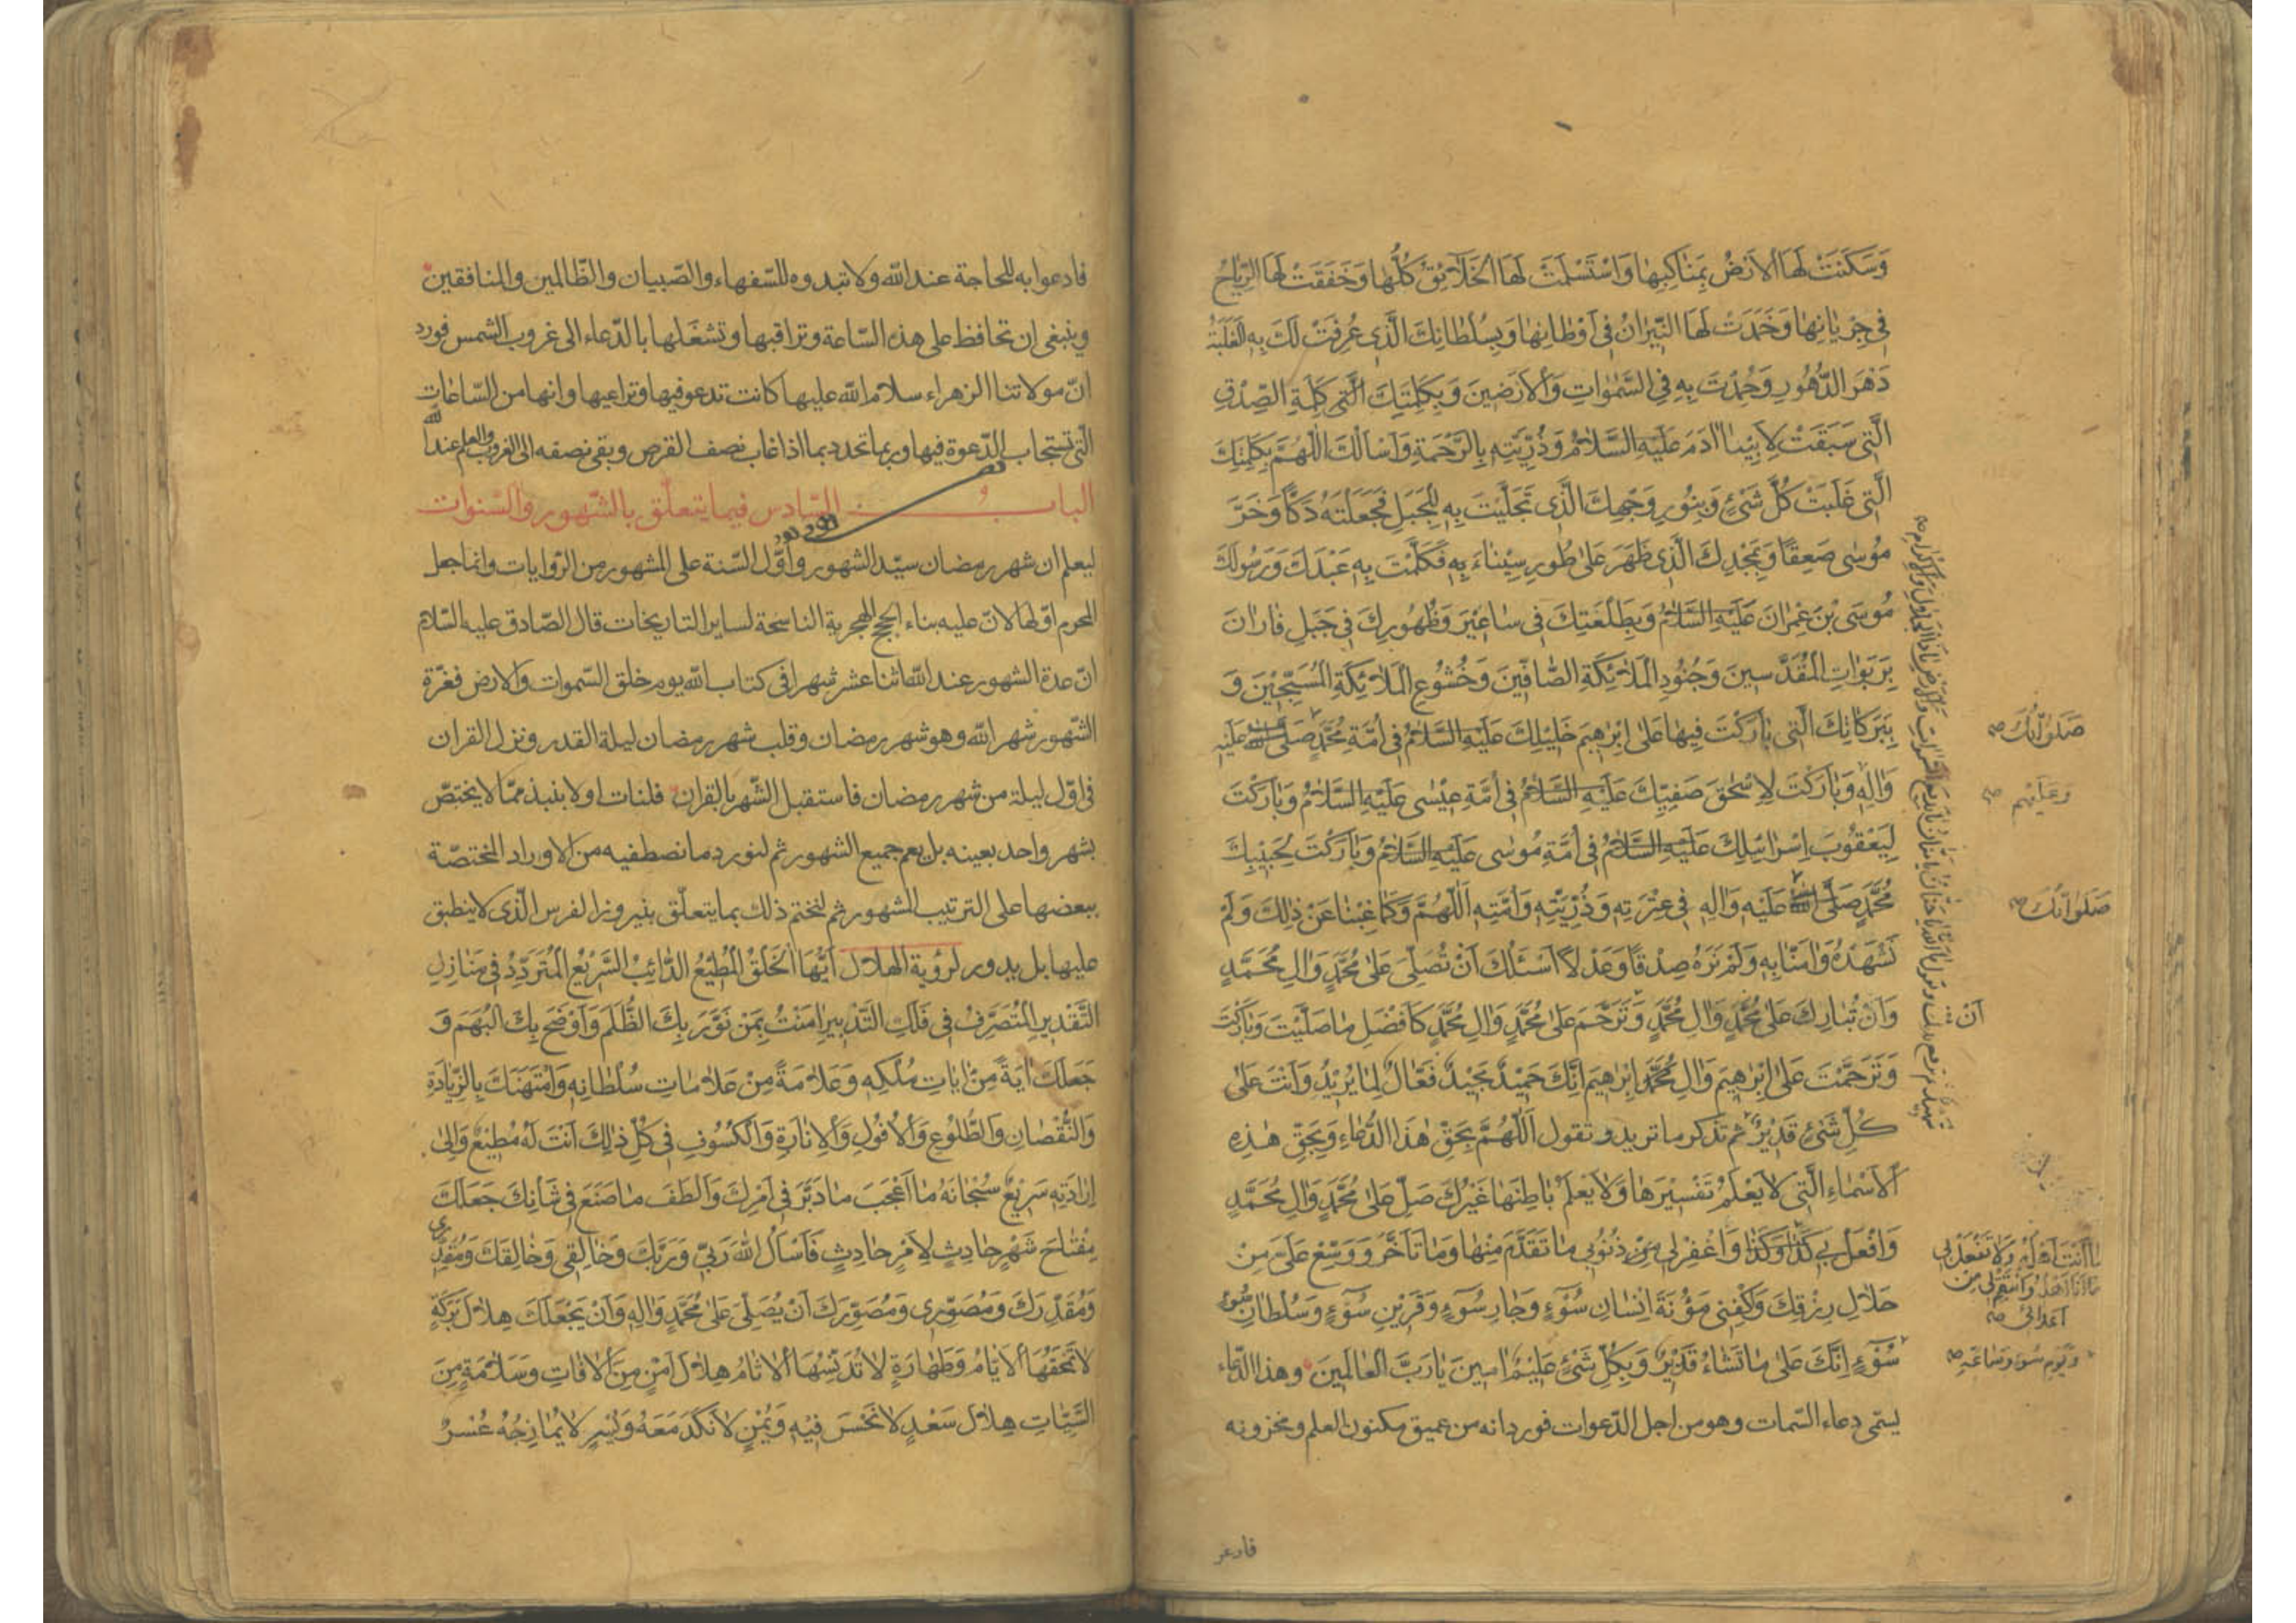 وَسَكَنَتْ لَهَا الْأَرْضُ بِمَنَاكِبِهَا وَاسْتَسْلَمَتْ لَهَا الْخَلَائِقُ كُلُّهَا وَخَفَقَتْ لَهَا الرِّيَاحُ
فِي جَرَيَانِهَا وَخَمَدَتْ لَهَا النِّيرَانُ فِي أَوْطَانِهَا وَبِسُلْطَانِكَ الَّذِي عُرِفَتْ لَكَ بِهِ الْغَلَبَةُ
دَهْرَ الدُّهُورِ وَحُمِدْتَ بِهِ فِي السَّمٰوَاتِ وَالْأَرَضِينَ وَبِكَلِمَتِكَ الَّتِي كَلِمَةِ الصِّدْقِ
الَّتِي سَبَقَتْ لِأَبِينَا آدَمَ عَلَيْهِ السَّلَامُ وَذُرِّيَّتِهِ بِالرَّحْمَةِ وَأَسْأَلُكَ اللّٰهُمَّ بِكَلِمَتِكَ
الَّتِي غَلَبَتْ كُلَّ شَيْءٍ وَبِنُورِ وَجْهِكَ الَّذِي تَجَلَّيْتَ بِهِ لِلْجَبَلِ فَجَعَلْتَهُ دَكًّا وَخَرَّ
مُوسَى صَعِقًا وَبِمَجْدِكَ الَّذِي ظَهَرَ عَلَى طُورِ سِينَاءَ بِهِ فَكَلَّمْتَ بِهِ عَبْدَكَ وَرَسُولَكَ
مُوسَى بْنَ عِمْرَانَ عَلَيْهِ السَّلَامُ وَبِطَلْعَتِكَ فِي سَاعِيرَ وَظُهُورِكَ فِي جَبَلِ فَارَانَ
بِرَبَوَاتِ الْمُقَدَّسِينَ وَجُنُودِ الْمَلَائِكَةِ الصَّافِّينَ وَخُشُوعِ الْمَلَائِكَةِ الْمُسَبِّحِينَ وَ
بِبَرَكَاتِكَ الَّتِي بَارَكْتَ فِيهَا عَلَى إِبْرَاهِيمَ خَلِيلِكَ عَلَيْهِ السَّلَامُ فِي أُمَّةِ مُحَمَّدٍ صَلَّى اللّٰهُ عَلَيْهِ
صَلَوَاتُكَ
وَآلِهِ وَبَارَكْتَ لِإِسْحٰقَ صَفِيِّكَ عَلَيْهِ السَّلَامُ فِي أُمَّةِ عِيسَى عَلَيْهِ السَّلَامُ وَبَارَكْتَ
وَعَلَيْهِم
لِيَعْقُوبَ إِسْرَائِيلِكَ عَلَيْهِ السَّلَامُ فِي أُمَّةِ مُوسَى عَلَيْهِ السَّلَامُ وَبَارَكْتَ لِحَبِيبِكَ
مُحَمَّدٍ صَلَّى اللّٰهُ عَلَيْهِ وَآلِهِ فِي عِتْرَتِهِ وَذُرِّيَّتِهِ وَأُمَّتِهِ اَللّٰهُمَّ وَكَمَا غِبْنَا عَنْ ذٰلِكَ وَلَمْ
صَلَوَاتُكَ
نَشْهَدْهُ وَآمَنَّا بِهِ وَلَمْ نَرَهُ صِدْقًا وَعَدْلًا أَسْئَلُكَ أَنْ تُصَلِّيَ عَلَى مُحَمَّدٍ وَآلِ مُحَمَّدٍ
وَأَنْ تُبَارِكَ عَلَى مُحَمَّدٍ وَآلِ مُحَمَّدٍ وَتَرَحَّمَ عَلَى مُحَمَّدٍ وَآلِ مُحَمَّدٍ كَأَفْضَلِ مَا صَلَّيْتَ وَبَارَكْتَ
أَنْ
وَتَرَحَّمْتَ عَلَى إِبْرَاهِيمَ وَآلِ إِبْرَاهِيمَ إِنَّكَ حَمِيدٌ مَجِيدٌ فَعَّالٌ لِمَا يُرِيدُ وَأَنْتَ عَلَى
كُلِّ شَيْءٍ قَدِيرٌ ثم تذكر ما تريد و تقول اَللّٰهُمَّ بِحَقِّ هٰذَا الدُّعَاءِ وَبِحَقِّ هٰذِهِ
الْأَسْمَاءِ الَّتِي لَا يَعْلَمُ تَفْسِيرَهَا وَلَا يَعْلَمُ بَاطِنَهَا غَيْرُكَ صَلِّ عَلَى مُحَمَّدٍ وَآلِ مُحَمَّدٍ
وَافْعَلْ بِي كَذَا وَكَذَا وَاغْفِرْ لِي مِنْ ذُنُوبِي مَا تَقَدَّمَ مِنْهَا وَمَا تَأَخَّرَ وَوَسِّعْ عَلَيَّ مِنْ
مَا أَنْتَ أَهْلُهُ وَلَا تَفْعَلْ بِي
مَا أَنَا أَهْلُهُ وَانْتَقِمْ لِي مِنْ
أَعْدَائِي
حَلَالِ رِزْقِكَ وَاكْفِنِي مَؤُنَةَ إِنْسَانِ سَوْءٍ وَجَارِ سَوْءٍ وَقَرِينِ سَوْءٍ وَسُلْطَانِ
سَوْءٍ إِنَّكَ عَلَى مَا تَشَاءُ قَدِيرٌ وَبِكُلِّ شَيْءٍ عَلِيمٌ آمِينَ يَا رَبَّ الْعَالَمِينَ وهذا الدّعاء
وَيَوْمِ سَوْءٍ وَسَاعَةِ
يسمّى دعاء السّمات وهو من اجل الدّعوات فورد انه من عميق مكنون العلم ومخزونه
فادعو
فادعوا به للحاجة عند الله ولا تبدوه للسّفهاء والصّبيان والظّالمين والمنافقين
وينبغي ان تحافظ على هذه السّاعة وتراقبها وتشغلها بالدّعاء الى غروب الشمس فورد
انّ مولاتنا الزهراء سلام الله عليها كانت تدعو فيها وتراعيها وانها من السّاعات
الّتي تستجاب الدّعوة فيها وربما تحدد بما اذا غاب نصف القرص وبقى نصفه الى الغروب والعلم عند الله
الباب السّادس فيما يتعلّق بالشّهور والسّنوات
ليعلم ان شهر رمضان سيّد الشهور واوّل السّنة على المشهور من الرّوايات وانما جعل
المحرم اوّلها لانّ عليه بناء الحجج الهجرية الناسخة لساير التاريخات قال الصّادق عليه السّلام
انّ عدة الشهور عند الله اثنا عشر شهرا في كتاب الله يوم خلق السّموات والارض فغرّة
الشّهور شهر الله وهو شهر رمضان وقلب شهر رمضان ليلة القدر ونزل القران
في اوّل ليلة من شهر رمضان فاستقبل الشّهر بالقران فلنات اولا بنبذ ممّا لا يختصّ
بشهر واحد بعينه بل يعم جميع الشهور ثم لنورد ما نصطفيه من الاوراد المختصّة
ببعضها على الترتيب المشهور ثم لنختم ذلك بما يتعلّق بنيروز الفرس الّذي لا ينطبق
عليها بل يدور لرؤية الهلال أَيُّهَا الْخَلْقُ الْمُطِيعُ الدَّائِبُ السَّرِيعُ الْمُتَرَدِّدُ فِي مَنَازِلِ
التَّقْدِيرِ الْمُتَصَرِّفُ فِي فَلَكِ التَّدْبِيرِ آمَنْتُ بِمَنْ نَوَّرَ بِكَ الظُّلَمَ وَأَوْضَحَ بِكَ الْبُهَمَ وَ
جَعَلَكَ آيَةً مِنْ آيَاتِ مُلْكِهِ وَعَلَامَةً مِنْ عَلَامَاتِ سُلْطَانِهِ وَامْتَهَنَكَ بِالزِّيَادَةِ
وَالنُّقْصَانِ وَالطُّلُوعِ وَالْأُفُولِ وَالْإِنَارَةِ وَالْكُسُوفِ فِي كُلِّ ذٰلِكَ أَنْتَ لَهُ مُطِيعٌ وَإِلَى
إِرَادَتِهِ سَرِيعٌ سُبْحَانَهُ مَا أَعْجَبَ مَا دَبَّرَ فِي أَمْرِكَ وَأَلْطَفَ مَا صَنَعَ فِي شَأْنِكَ جَعَلَكَ
مِفْتَاحَ شَهْرٍ حَادِثٍ لِأَمْرٍ حَادِثٍ فَأَسْأَلُ اللّٰهَ رَبِّي وَرَبَّكَ وَخَالِقِي وَخَالِقَكَ وَمُقَدِّرِي
وَمُقَدِّرَكَ وَمُصَوِّرِي وَمُصَوِّرَكَ أَنْ يُصَلِّيَ عَلَى مُحَمَّدٍ وَآلِهِ وَأَنْ يَجْعَلَكَ هِلَالَ بَرَكَةٍ
لَا تَمْحَقُهَا الْأَيَّامُ وَطَهَارَةٍ لَا تُدَنِّسُهَا الْآثَامُ هِلَالَ أَمْنٍ مِنَ الْآفَاتِ وَسَلَامَةٍ مِنَ
السَّيِّئَاتِ هِلَالَ سَعْدٍ لَا نَحْسَ فِيهِ وَيُمْنٍ لَا نَكَدَ مَعَهُ وَيُسْرٍ لَا يُمَازِجُهُ عُسْرٌ